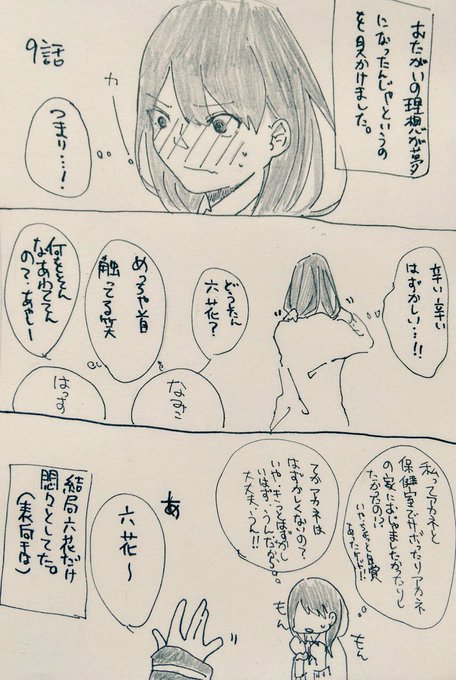 おたがいの理想が夢
になったんじゃというの
を見かけました。
9話
カ
つまり…!
辛い辛い
はずかしい…!!
どったん
六花?
めっちゃ首
触ってる笑
何をそんな
なあわててん
の?あやしー
なみこ
はっす
私ってアカネと
保健室でサボったりアカネ
の家におじゃましたかったりし
たかったの!?
あったけど!!
てかアカネは
はずかしくないの?
大丈夫、うん!!
もん
もん
あ
六花〜
結局六花だけ
悶々としてた。